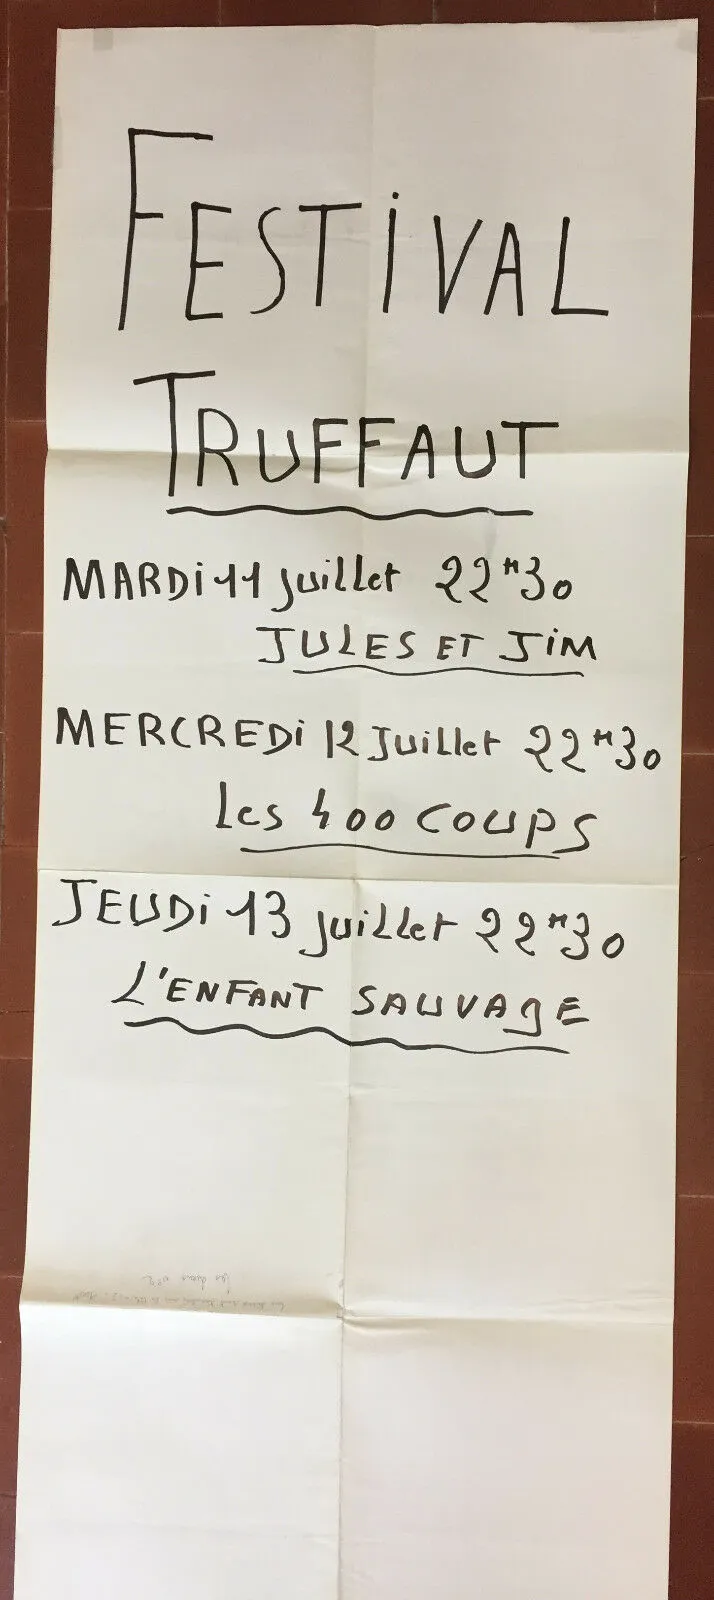 FESTiVAL
TRUFFAUT
MARDi 11 juillet 22H30
JULES ET JiM
MERCREDi 12 Juillet 22H30
Les 400 COUPS
JEUDi 13 juillet 22H30
L'ENFANT SAUVAgE